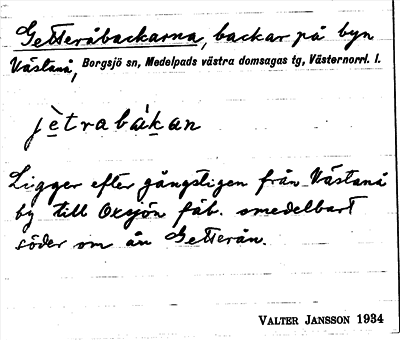 Getteråbackarna, backar på byn
Västanå, Borgsjö sn, Medelpads västra domsagas tg, Västernorrl. l.
jètrabàkan
Ligger efter gångstigen från Västanå
by till Oxsjön fäb. omedelbart
söder om ån Getterån.
VALTER JANSSON 1934